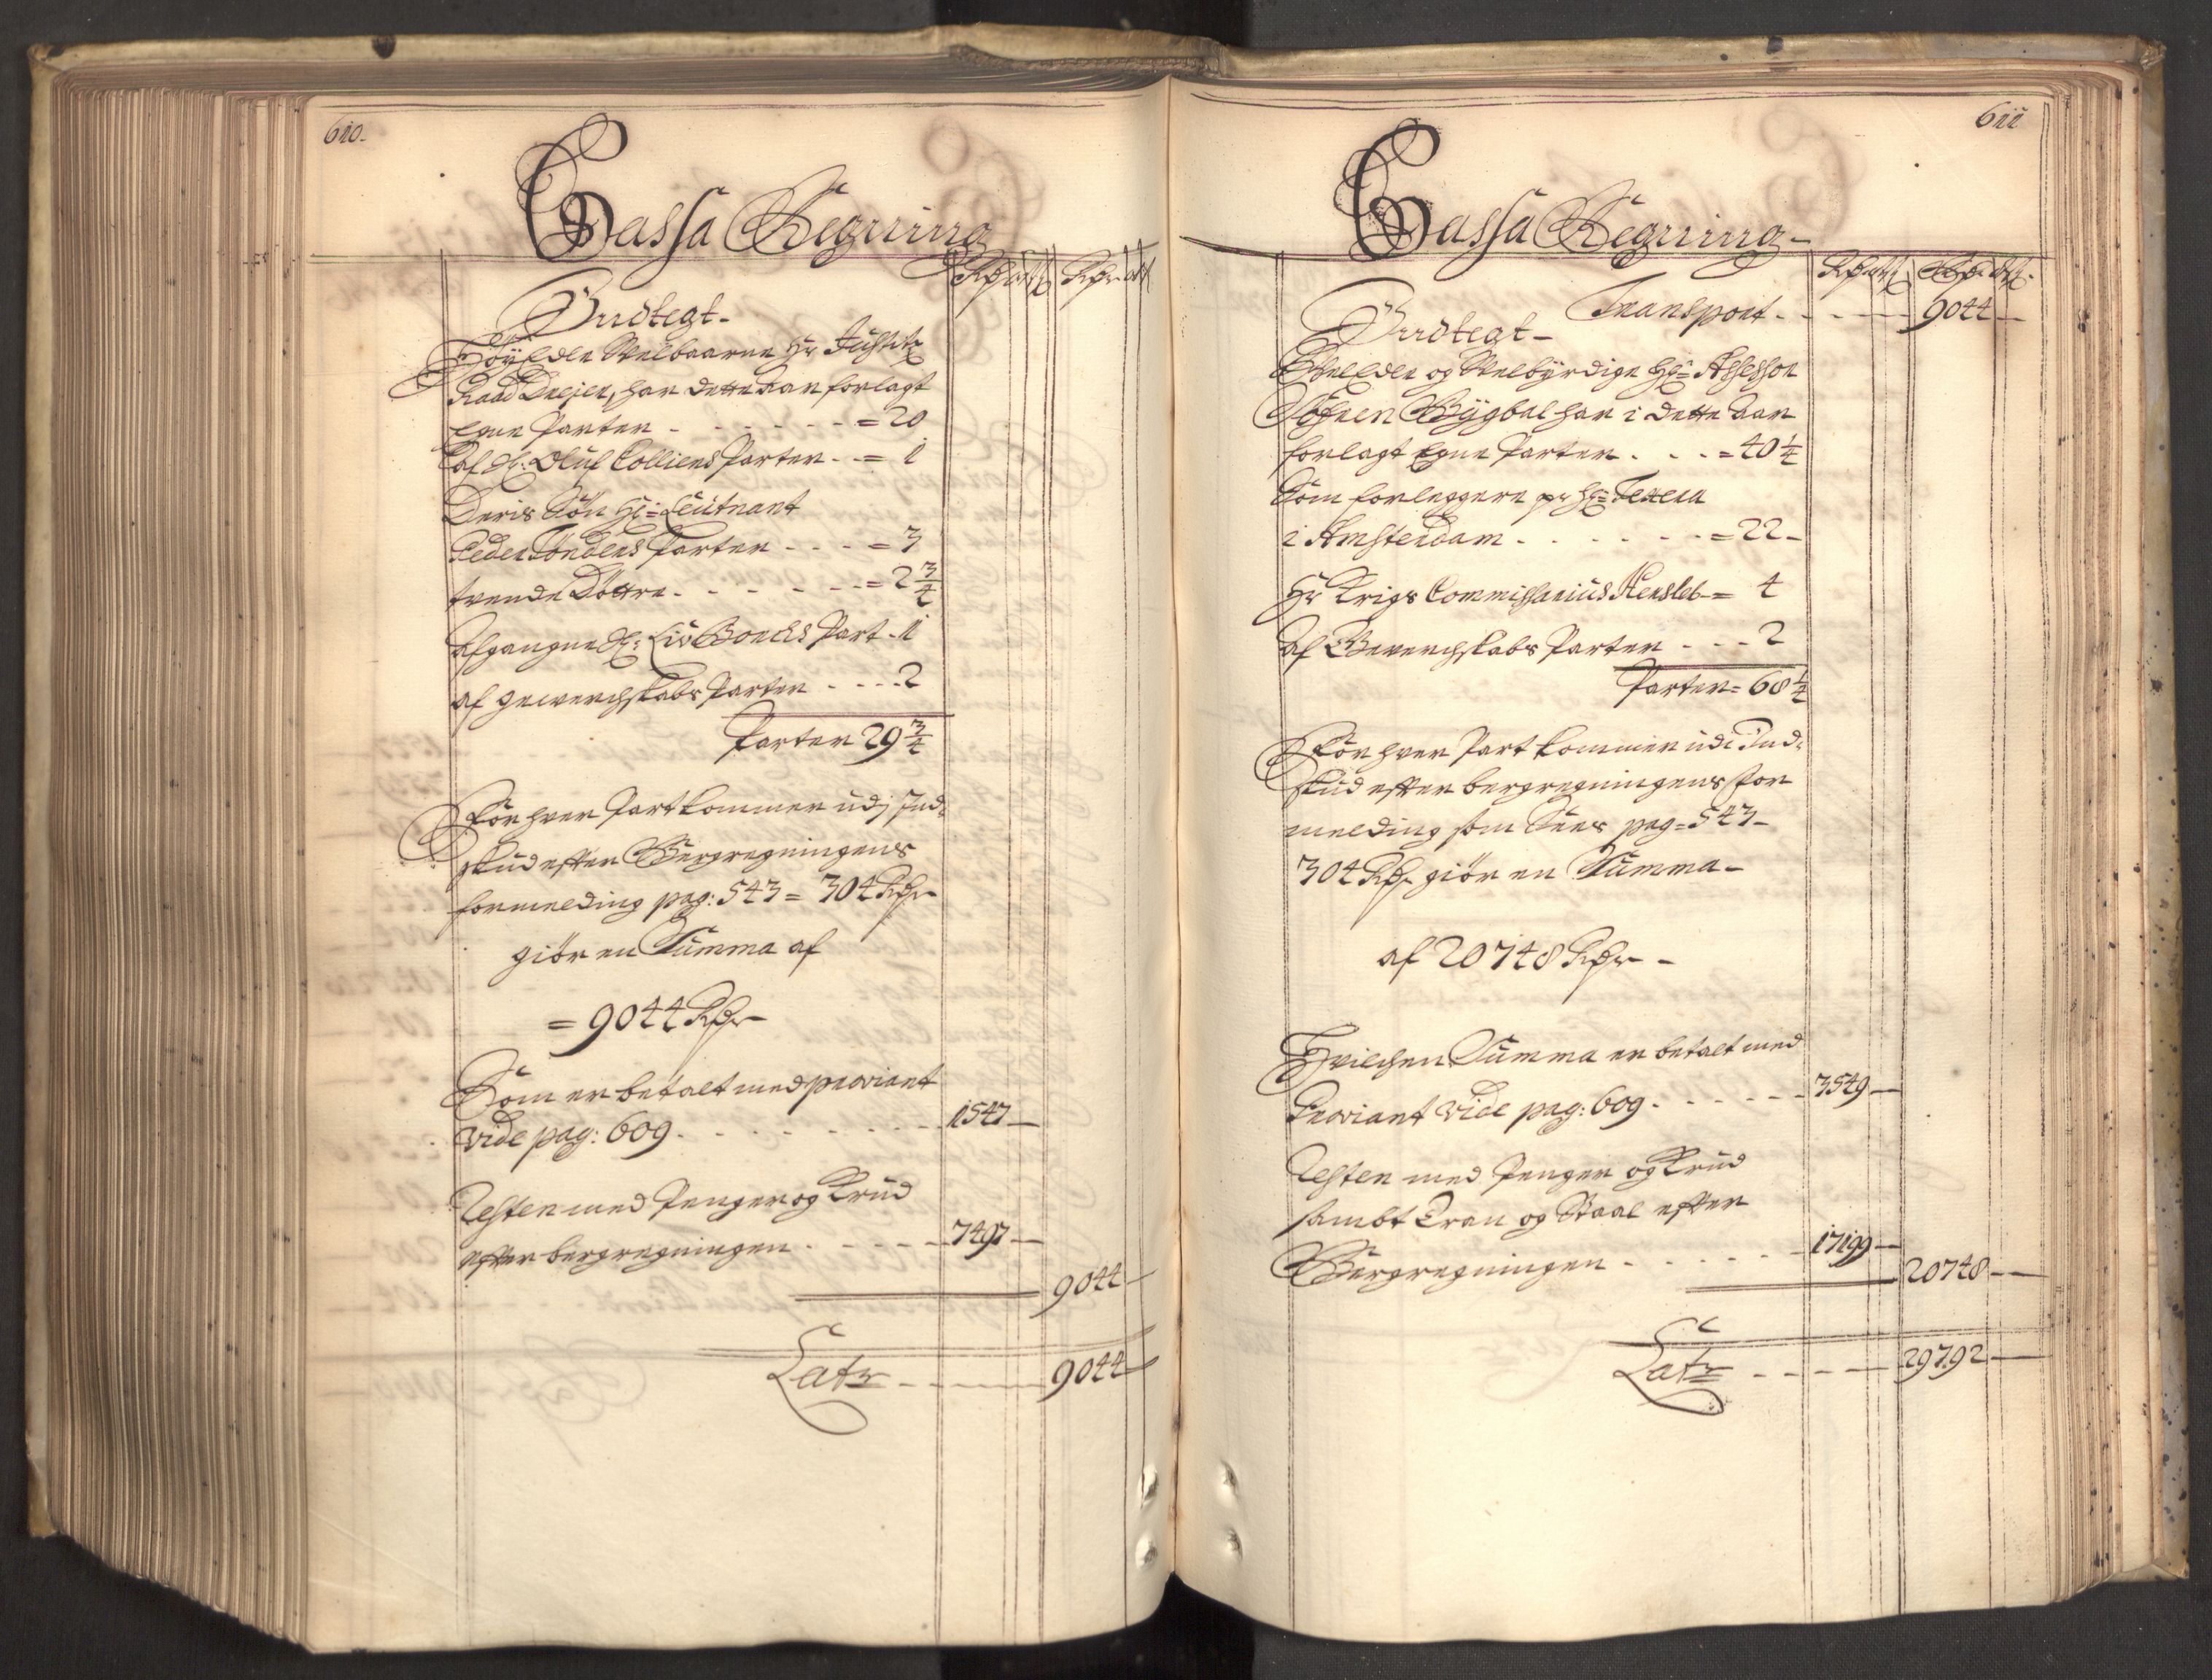 610.
Cassa Regning
Rdr ort ß Rdr ort ß
Indtegt-
Höÿ Edle Velbaarne Hr Justitz
Raad Dreÿer, har dette Aar forlagt
Egne Parter - - - - - - = 20
af Sl: Oluf Colliens Parter - - = 1
Deris Sön Hr: Leütnant
Peder Tönders Parter - - - - = 3
tvende Döttre. - - - - - - = 2 3/4
Afgangne Sl: Liv Borchs Part - 1
af gewerchskabs Parter - - - - 2
Parter 29 3/4
For hver Part kommer udj Ind-
skud efter Bergregningens
formelding pag: 543 = 304 Rdr
giör en Summa af
= 9044 Rdr
Som er betalt med proviant
vide pag: 609. - - - - - - - - - 1547 —
Resten med Penger og Krud
efter bergregningen - - - - - 7497 —
9044 —
Latr - - - - - 9044 —
611
Cassa Regning -
Rdr ort ß Rdr ort ß
Transport - - - - - 9044 —
Indtegt -
Vel Edle og Velbÿrdige Hr: Assessor
Söfren Bÿgbal har i dette Aar
forlagt Egne Parter. - - - = 40 1/4
Som forleggere for Hr: Texera
i Amsterdam - - - - - - = 22 -
Hr Krigs Commissarius Hersleb = 4
Af Gewerchskabs Parter - - - 2
Parter = 68 1/4
For hver Part kommer udi Ind-
skud efter bergregningens for
melding som Sees pag = 543 -
304 Rdr giör en Summa -
af 20748 Rdr -
Hvilchen Summa er betalt med
Proviant vide pag: 609. - - - - - - 3549 —
Resten med Penger og Krud
sambt Tran og Staal efter
Bergregningen - - - - - 17199 —
20748 —
Latr - - - - - 29792 —